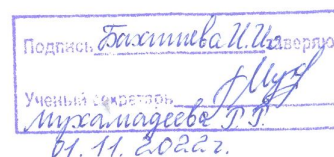 Подпись Бахтиева И.И. заверяю
Ученый секретарь
Мухамадеева Р.Р.
01.11.2022г.